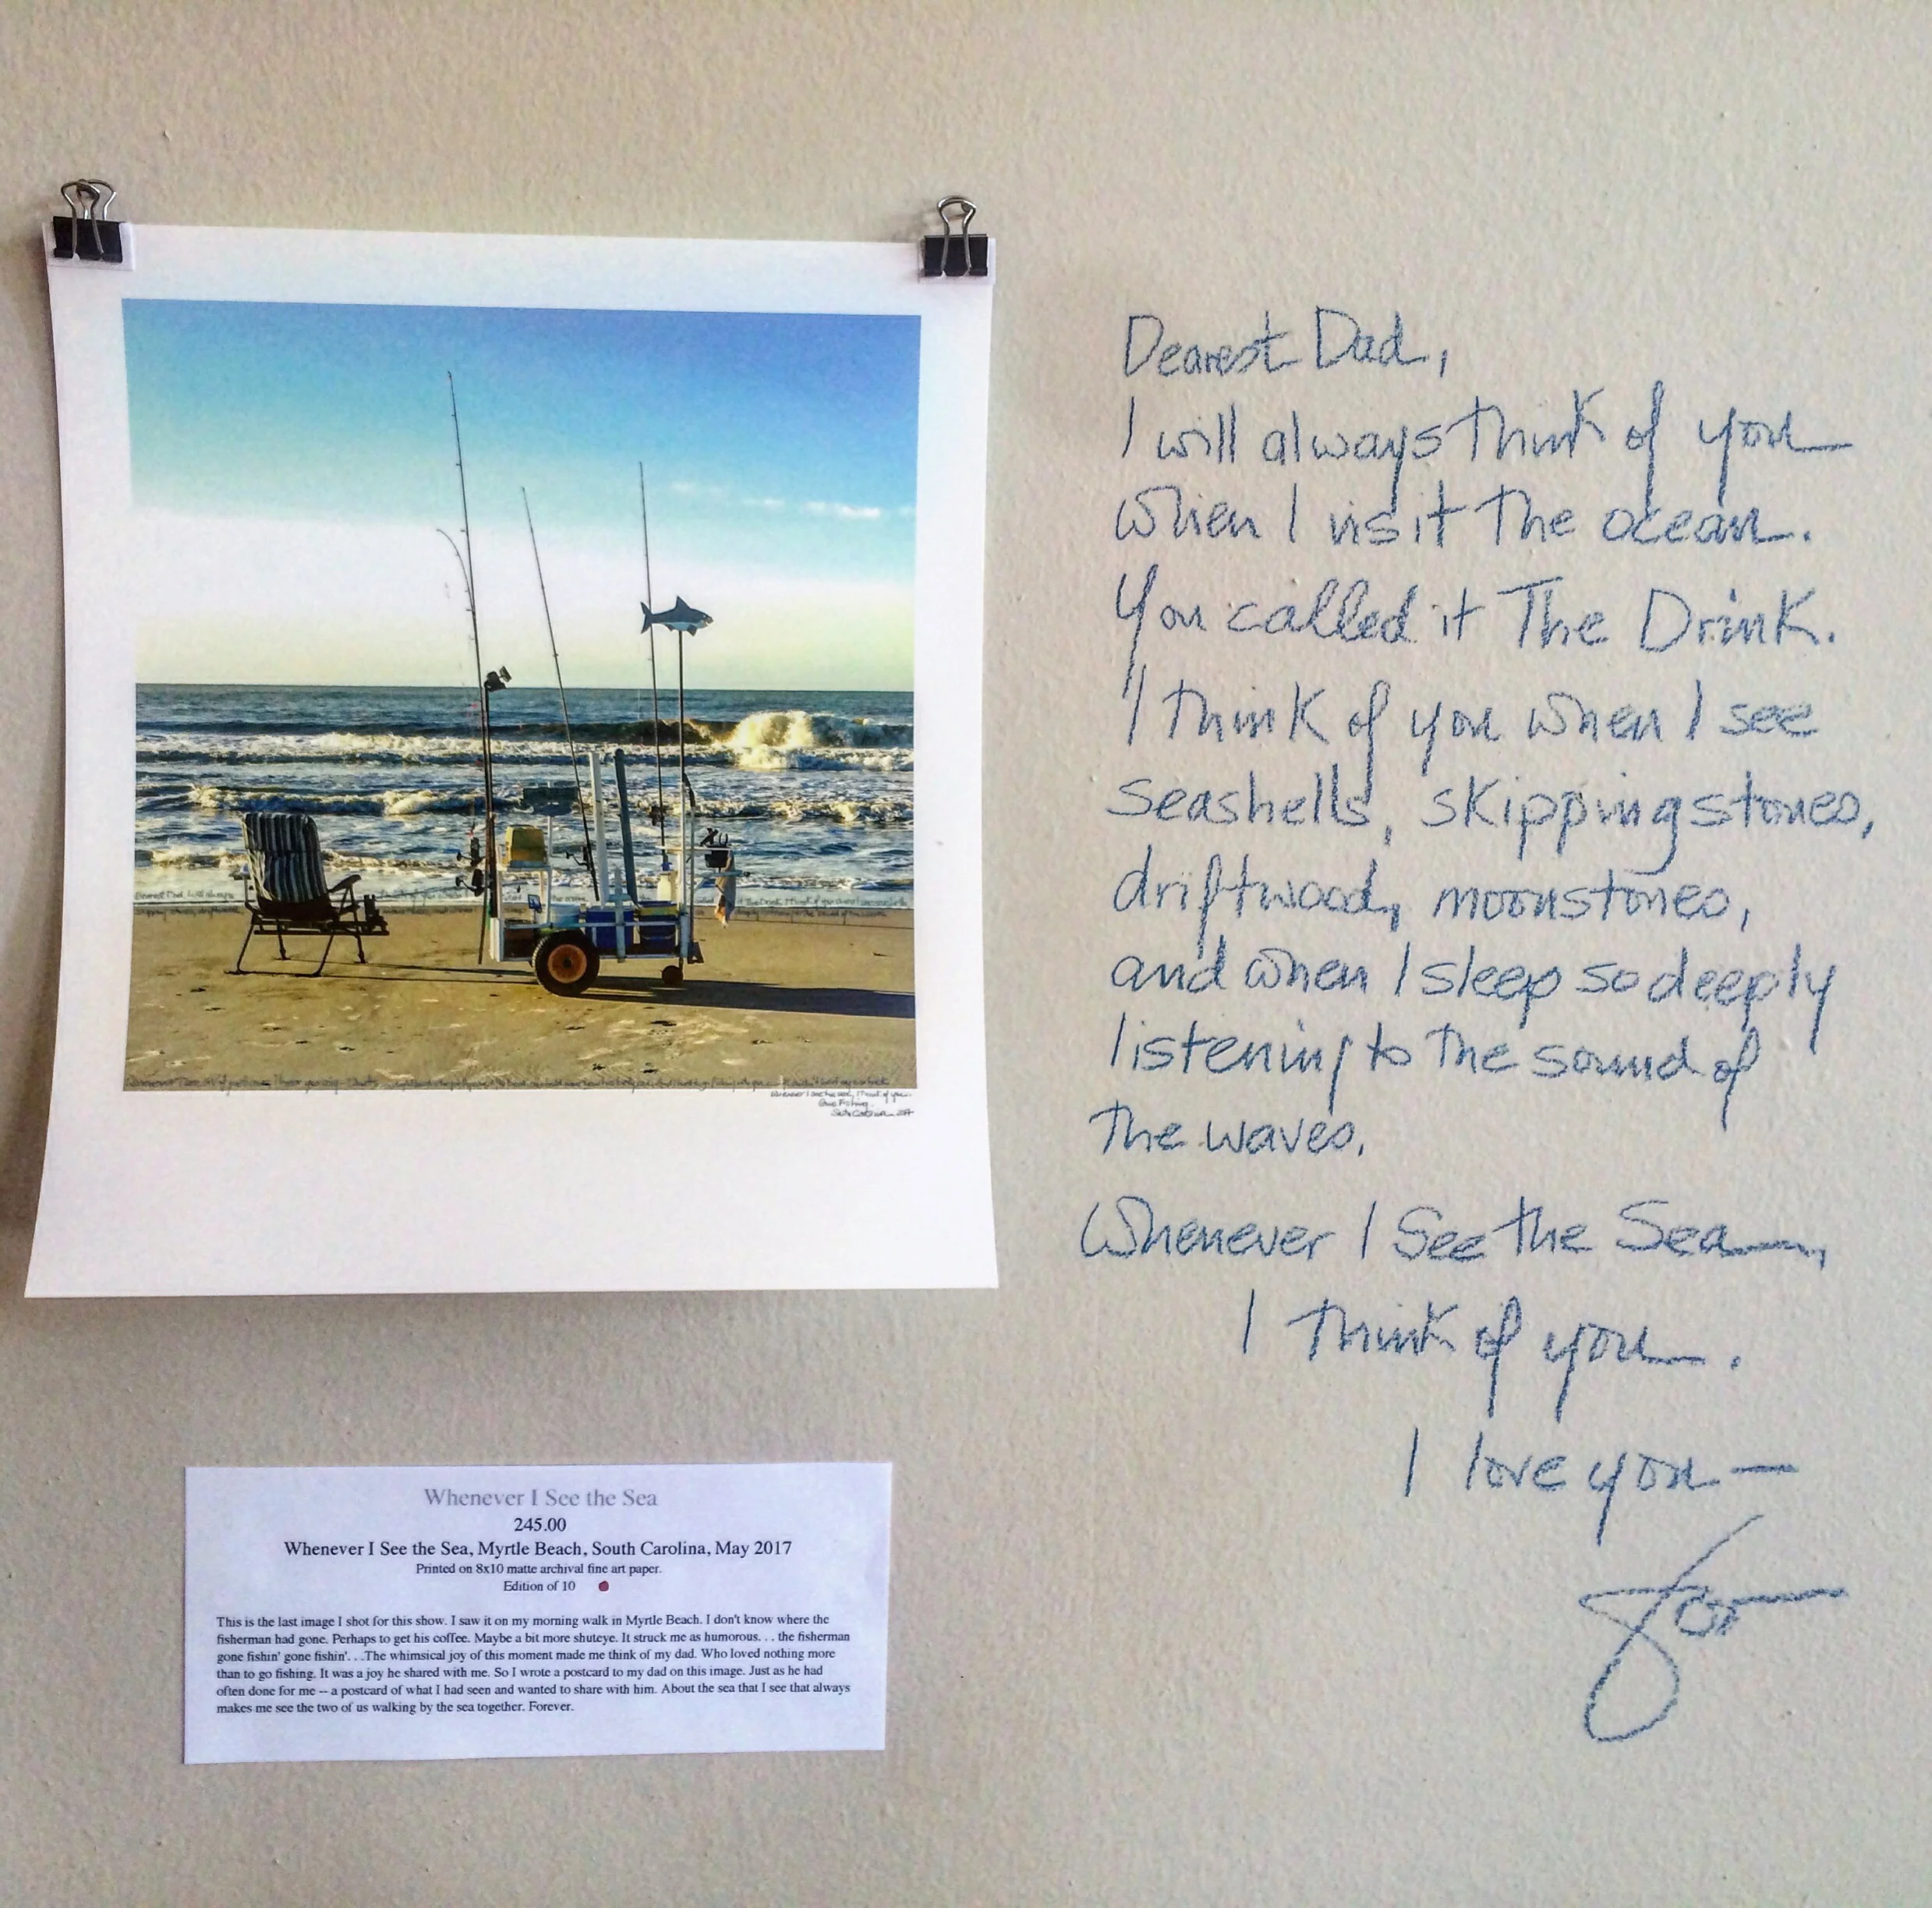 Dearest Dad,
I will always think of you
when I visit the ocean.
You called it The Drink.
I think of you when I see
seashells, skipping stones,
driftwood, moonstones,
and when I sleep so deeply
listening to the sound of
the waves.
Whenever I See the Sea,
I think of you.
I love you—
Whenever I See the Sea
245.00
Whenever I See the Sea, Myrtle Beach, South Carolina, May 2017
Printed on 8x10 matte archival fine art paper.
Edition of 10
This is the last image I shot for this show. I saw it on my morning walk in Myrtle Beach. I don't know where the
fisherman had gone. Perhaps to get his coffee. Maybe a bit more shuteye. It struck me as humorous. . . the fisherman
gone fishin' gone fishin'. . .The whimsical joy of this moment made me think of my dad. Who loved nothing more
than to go fishing. It was a joy he shared with me. So I wrote a postcard to my dad on this image. Just as he had
often done for me -- a postcard of what I had seen and wanted to share with him. About the sea that I see that always
makes me see the two of us walking by the sea together. Forever.